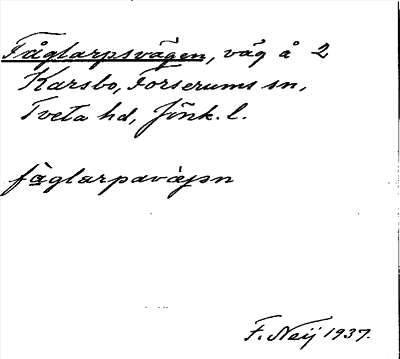 Fåglarpsvägen, väg å 2
Karsbo, Forserums sn,
Tveta hd, Jönk. l.
fåglarpaväjən
F. Neij 1937.